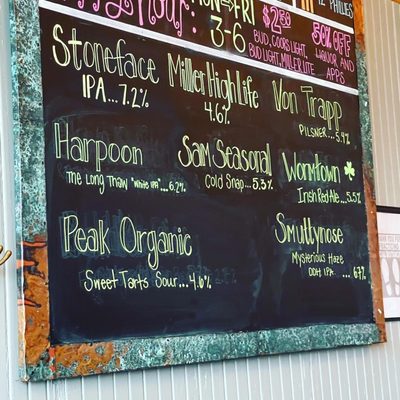 Hour:
MON → FRI
3-6
$2.50
BUD, COORS LIGHT,
BUD LIGHT, MILLER LITE
12 PHILLIES
50% OFF
LIQUOR AND
APPS
Stoneface
IPA... 7.2%
Miller High Life
4.6%
Von Trapp
PILSNER... 5.4%
Harpoon
The Long Thaw "White IPA"... 6.2%
Sam Seasonal
Cold Snap... 5.3%
Wormtown
Irish Red Ale... 5.5%
Peak Organic
Sweet Tarts Sour... 4.6%
Smuttynose
Mysterious Haze
DDH IPA ... 6.7%